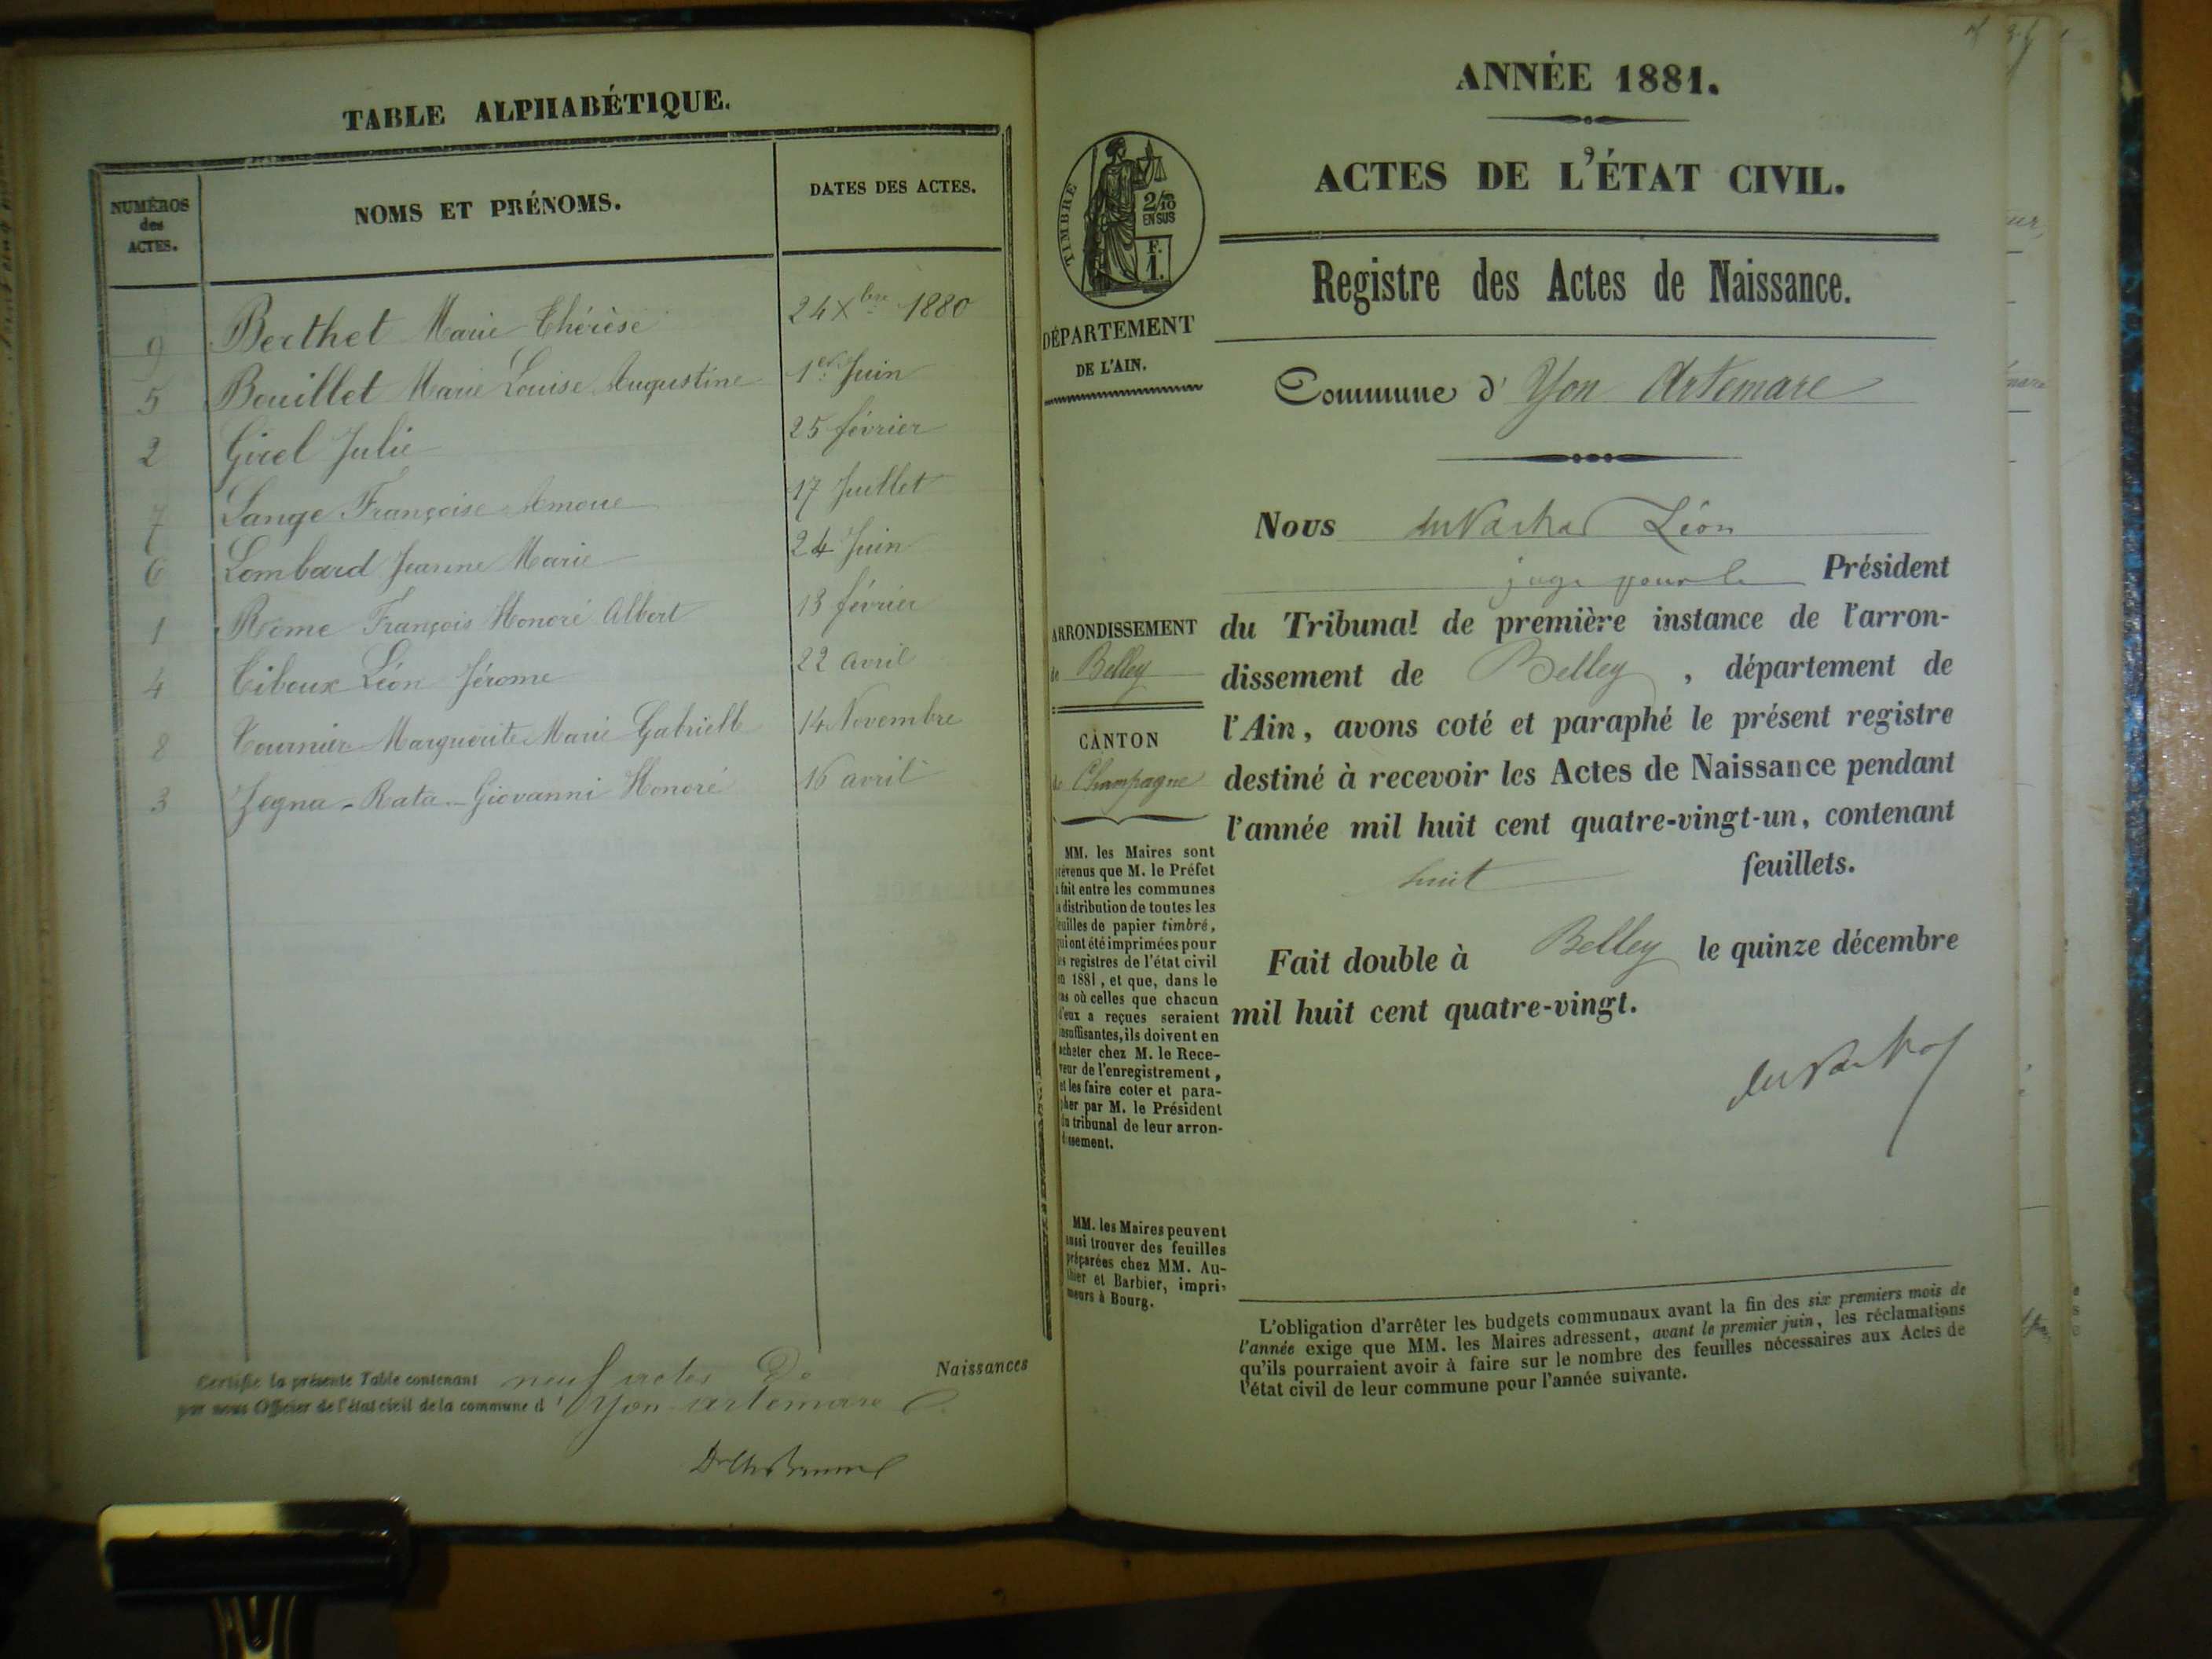 TABLE ALPHABÉTIQUE.
NUMÉROS des ACTES.
NOMS ET PRÉNOMS.
DATES DES ACTES.
9 Berthet Marie Thérèse 24 Xbre 1880
5 Bouillet Marie Louise Augustine 1er Juin
2 Girel Julie 25 février
7 Lange Françoise 17 Juillet
6 Lombard Jeanne Marie 24 Juin
1 Rome François Honoré Albert 13 février
4 Tiboux Léon Jérome 22 avril
8 Tournier Marguerite Marie Gabrielle 14 Novembre
3 Zegna-Rata-Giovanni Honoré 16 avril
Certifié la présente Table contenant neuf actes de Naissances
par nous Officier de l'état civil de la commune d'Yon artemare
ANNÉE 1881.
ACTES DE L'ÉTAT CIVIL.
TIMBRE
2/10
EN SUS
F.
1.
DÉPARTEMENT
DE L'AIN.
Registre des Actes de Naissance.
Commune d'Yon Artemare
Nous Léon
juge pour le Président
ARRONDISSEMENT
de Belley
CANTON
de Champagne
du Tribunal de première instance de l'arron-
dissement de Belley, département de
l'Ain, avons coté et paraphé le présent registre
destiné à recevoir les Actes de Naissance pendant
l'année mil huit cent quatre-vingt-un, contenant
huit feuillets.
Fait double à Belley le quinze décembre
mil huit cent quatre-vingt.
MM. les Maires sont
prévenus que M. le Préfet
a fait entre les communes
la distribution de toutes les
feuilles de papier timbré,
qui ont été imprimées pour
les registres de l'état civil
en 1881, et que, dans le
cas où celles que chacun
d'eux a reçues seraient
insuffisantes, ils doivent en
acheter chez M. le Rece-
veur de l'enregistrement,
et les faire coter et para-
pher par M. le Président
du tribunal de leur arron-
dissement.
MM. les Maires peuvent
aussi trouver des feuilles
préparées chez MM. Au-
thier et Barbier, impri-
meurs à Bourg.
L'obligation d'arrêter les budgets communaux avant la fin des six premiers mois de
l'année exige que MM. les Maires adressent, avant le premier juin, les réclamations
qu'ils pourraient avoir à faire sur le nombre des feuilles nécessaires aux Actes de
l'état civil de leur commune pour l'année suivante.